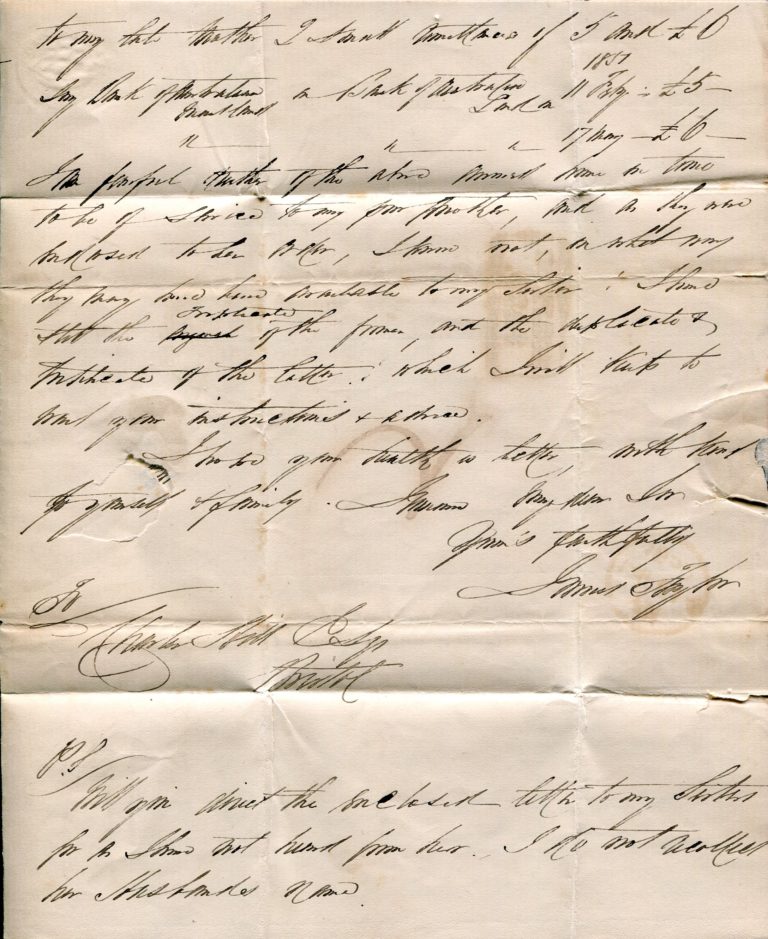 to my late Mother 2 small remittances of 5 and £6
1851
Say Bank of Australasia on Bank of Australasia 11 Feby - £5 -
London
" " " 17 May - £6 -
I am fearful neither of the above arrived home in time
to be of service to my poor Mother, and as they were
endorsed to her order, I know not, in what way
they may have been available to my Sister : I have
Triplicate
still the of the former, and the duplicate &
triplicate of the latter : which I will keep to
wait your instructions & advice.
I hope your health is better, with kind
to yourself & family. I remain My dear Sir
Your's faithfully
James Taylor
To
Charles Hill Esqr
Bristol
P.S
Will you direct the enclosed letter to my Sister
for as I have not heard from her. I do not recollect
her Husbandes name